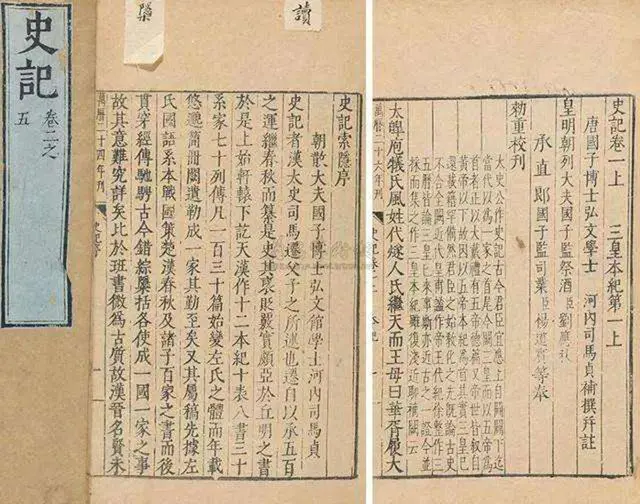 史記
卷二之
五
讀
史記卷一上 三皇本紀第一上
唐國子博士弘文學士 河內司馬貞補撰并註
皇明朝列大夫國子監祭酒臣劉應秋
承直郎國子監司業臣楊道賓等奉
勑重校刊
太史公作史記古今君臣宜應上自開闢下迄
當代以為一家之首尾今闕三皇而以五帝為
首者正以大戴禮有五帝德篇又帝世皆叙自
黃帝以下故因以五帝本紀為首其實三皇已
還載籍罕備然君臣之始教化之先既論古史
不合全闕近代皇甫謐作帝王代紀徐整作三
五曆皆論三皇已來事斯亦近古之一證今並
採而集之作三皇本紀雖復淺近聊補闕云
太皞庖犧氏風姓代燧人氏繼天而王母曰華胥履大
萬曆二十六年刊
史記索隱序
朝散大夫國子博士弘文館學士河內司馬貞
史記者漢太史司馬遷父子之所述也遷自以承五百
之運繼春秋而纂是史其褒貶覈實頗亞於丘明之書
於是上始軒轅下訖天漢作十二本紀十表八書三十
系家七十列傳凡一百三十篇始變左氏之體而年載
悠邈簡冊闕遺勒成一家其勤至矣又其屬稿先據左
氏國語系本戰國策楚漢春秋及諸子百家之書而後
貫穿經傳馳騁古今錯綜櫽括各使成一國一家之事
故其意難究詳矣比於班書微為古質故漢晉名賢未
萬曆二十四年刊